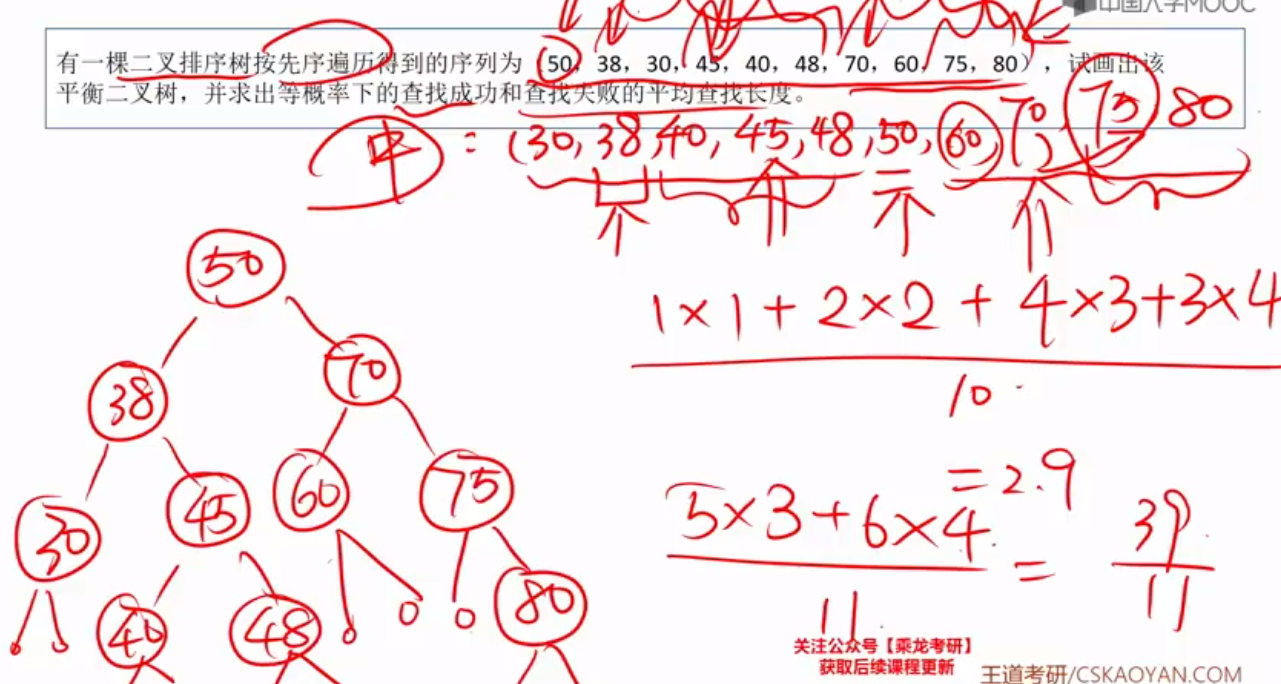 中国大学MOOC
有一棵二叉排序树按先序遍历得到的序列为（50，38，30，45，40，48，70，60，75，80），试画出该
平衡二叉树，并求出等概率下的查找成功和查找失败的平均查找长度。
中：(30,38,40,45,48,50,60,70,75 80
50
1×1+2×2+4×3+3×4
10
38 70
=2.9
30 45 60 75
5×3+6×4 = 39
11 11
40 48 80
关注公众号【乘龙考研】
获取后续课程更新
王道考研/CSKAOYAN.COM